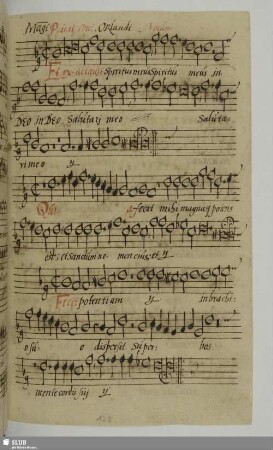 Magi: Orlandi
Et exultauit Spiritus meus Spiritus meus in
DEO in DEO Salutari meo Saluta
ri meo ÿ
Qui a fecit mihi magna qui potens
est, et Sanctum no men eius, et ÿ
Fecit potentiam ÿ in brachi:
o su: o dispersit Super: bos
mente cordis sui ÿ
SLUB